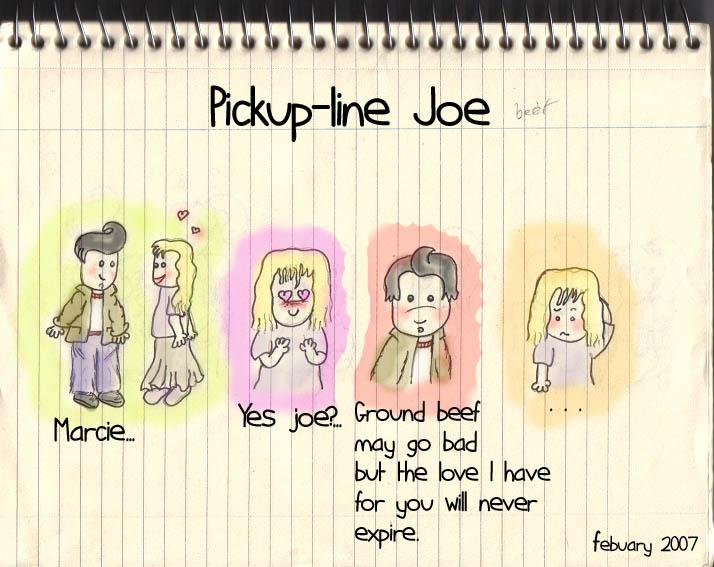 Pickup-line Joe beef
Marcie...
Yes joe?...
Ground beef
may go bad
but the love I have
for you will never
expire.
. . .
febuary 2007